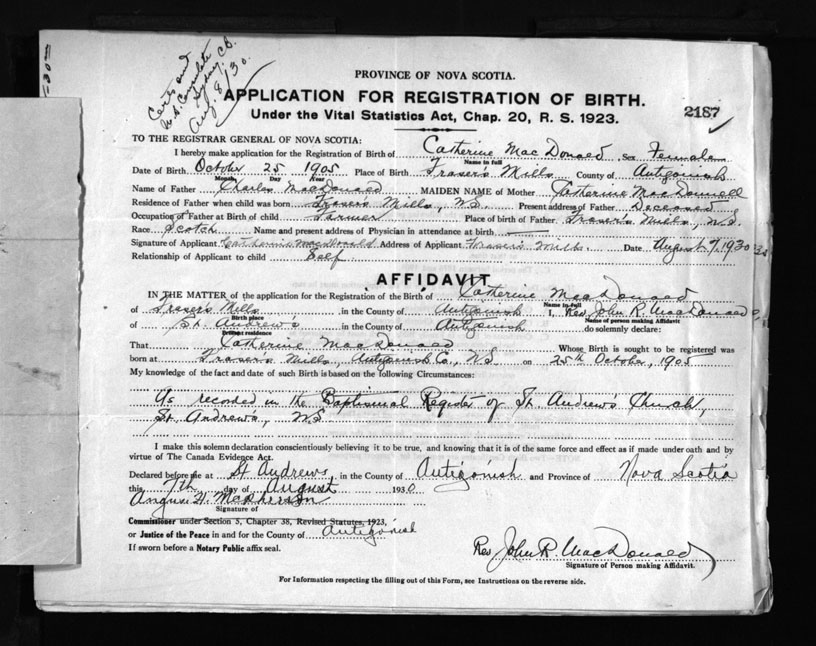 PROVINCE OF NOVA SCOTIA.
APPLICATION FOR REGISTRATION OF BIRTH.
Under the Vital Statistics Act, Chap. 20, R. S. 1923.
2187
Certs and
U.S. Consulate
Sydney, C.B.
Aug. 8/30.
TO THE REGISTRAR GENERAL OF NOVA SCOTIA:
I hereby make application for the Registration of Birth of Catherine MacDonald Sex Female
Name in full
Date of Birth October 25 1905 Place of Birth Fraser's Mills County of Antigonish
Month Day Year
Name of Father Charles MacDonald MAIDEN NAME of Mother Catherine MacDonnell
Residence of Father when child was born Fraser's Mills, N.S. Present address of Father Deceased
Occupation of Father at Birth of child Farmer Place of birth of Father Fraser's Mills, N.S.
Race Scotch Name and present address of Physician in attendance at birth
Signature of Applicant Catherine MacDonald Address of Applicant Fraser's Mills Date August 7, 1930
Relationship of Applicant to child Self
AFFIDAVIT
IN THE MATTER of the application for the Registration of the Birth of Catherine MacDonald
Name in full
of Fraser's Mills in the County of Antigonish I, Rev. John R. MacDonald
Birth place Name of person making Affidavit
of St. Andrew's in the County of Antigonish do solemnly declare:
residence
That Catherine MacDonald Whose Birth is sought to be registered was
born at Fraser's Mills, Antigonish Co., N.S on 25th October, 1905
My knowledge of the fact and date of such Birth is based on the following Circumstances:
As recorded in the Baptismal Register of St. Andrew's Church,
St. Andrews, N.S
I make this solemn declaration conscientiously believing it to be true, and knowing that it is of the same force and effect as if made under oath and by
virtue of The Canada Evidence Act.
Declared before me at St Andrews in the County of Antigonish and Province of Nova Scotia
this 7th day of August 1930
Angus H. MacPherson
Signature of
Commissioner under Section 3, Chapter 38, Revised Statutes, 1923,
or Justice of the Peace in and for the County of Antigonish
If sworn before a Notary Public affix seal.
Rev John R. MacDonald
Signature of Person making Affidavit.
For Information respecting the filling out of this Form, see Instructions on the reverse side.